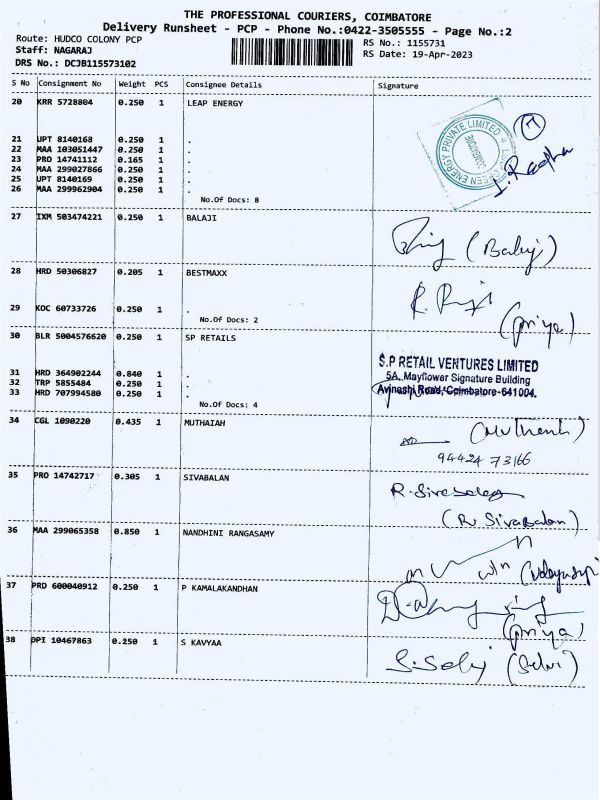 THE PROFESSIONAL COURIERS, COIMBATORE
Delivery Runsheet - PCP - Phone No.:0422-3505555 - Page No.:2
Route: HUDCO COLONY PCP
RS No.: 1155731
Staff: NAGARAJ
RS Date: 19-Apr-2023
DRS No.: DCJB115573102
S No Consignment No Weight PCS Consignee Details Signature
20 KRR 5728804 0.250 1 LEAP ENERGY
7
21 UPT 8140168 0.250 1 .
22 MAA 103051447 0.250 1 .
23 PRO 14741112 0.165 1 .
24 MAA 299027866 0.250 1 .
25 UPT 8140169 0.250 1 .
26 MAA 299962904 0.250 1 .
No.Of Docs: 8
GREEN ENERGY PRIVATE LIMITED
COIMBATORE
I. Radha
27 IXM 503474221 0.250 1 BALAJI
(Balaji)
28 HRD 50306827 0.205 1 BESTMAXX
29 KOC 60733726 0.250 1 .
No.Of Docs: 2
(priya)
30 BLR 5004576620 0.250 1 SP RETAILS
31 HRD 364902244 0.840 1 .
32 TRP 5855484 0.250 1 .
33 HRD 707994580 0.250 1 .
No.Of Docs: 4
S.P RETAIL VENTURES LIMITED
5A, Mayflower Signature Building
Avinashi Road, Coimbatore-641004.
34 CGL 1090220 0.435 1 MUTHAIAH
94424 73166
35 PRO 14742717 0.305 1 SIVABALAN
R. Sivabalan
(R. Sivabalan)
36 MAA 299065358 0.850 1 NANDHINI RANGASAMY
37 PRD 600040912 0.250 1 P KAMALAKANDHAN
(priya)
38 DPI 10467863 0.250 1 S KAVYAA
S. Selvi (Selvi)